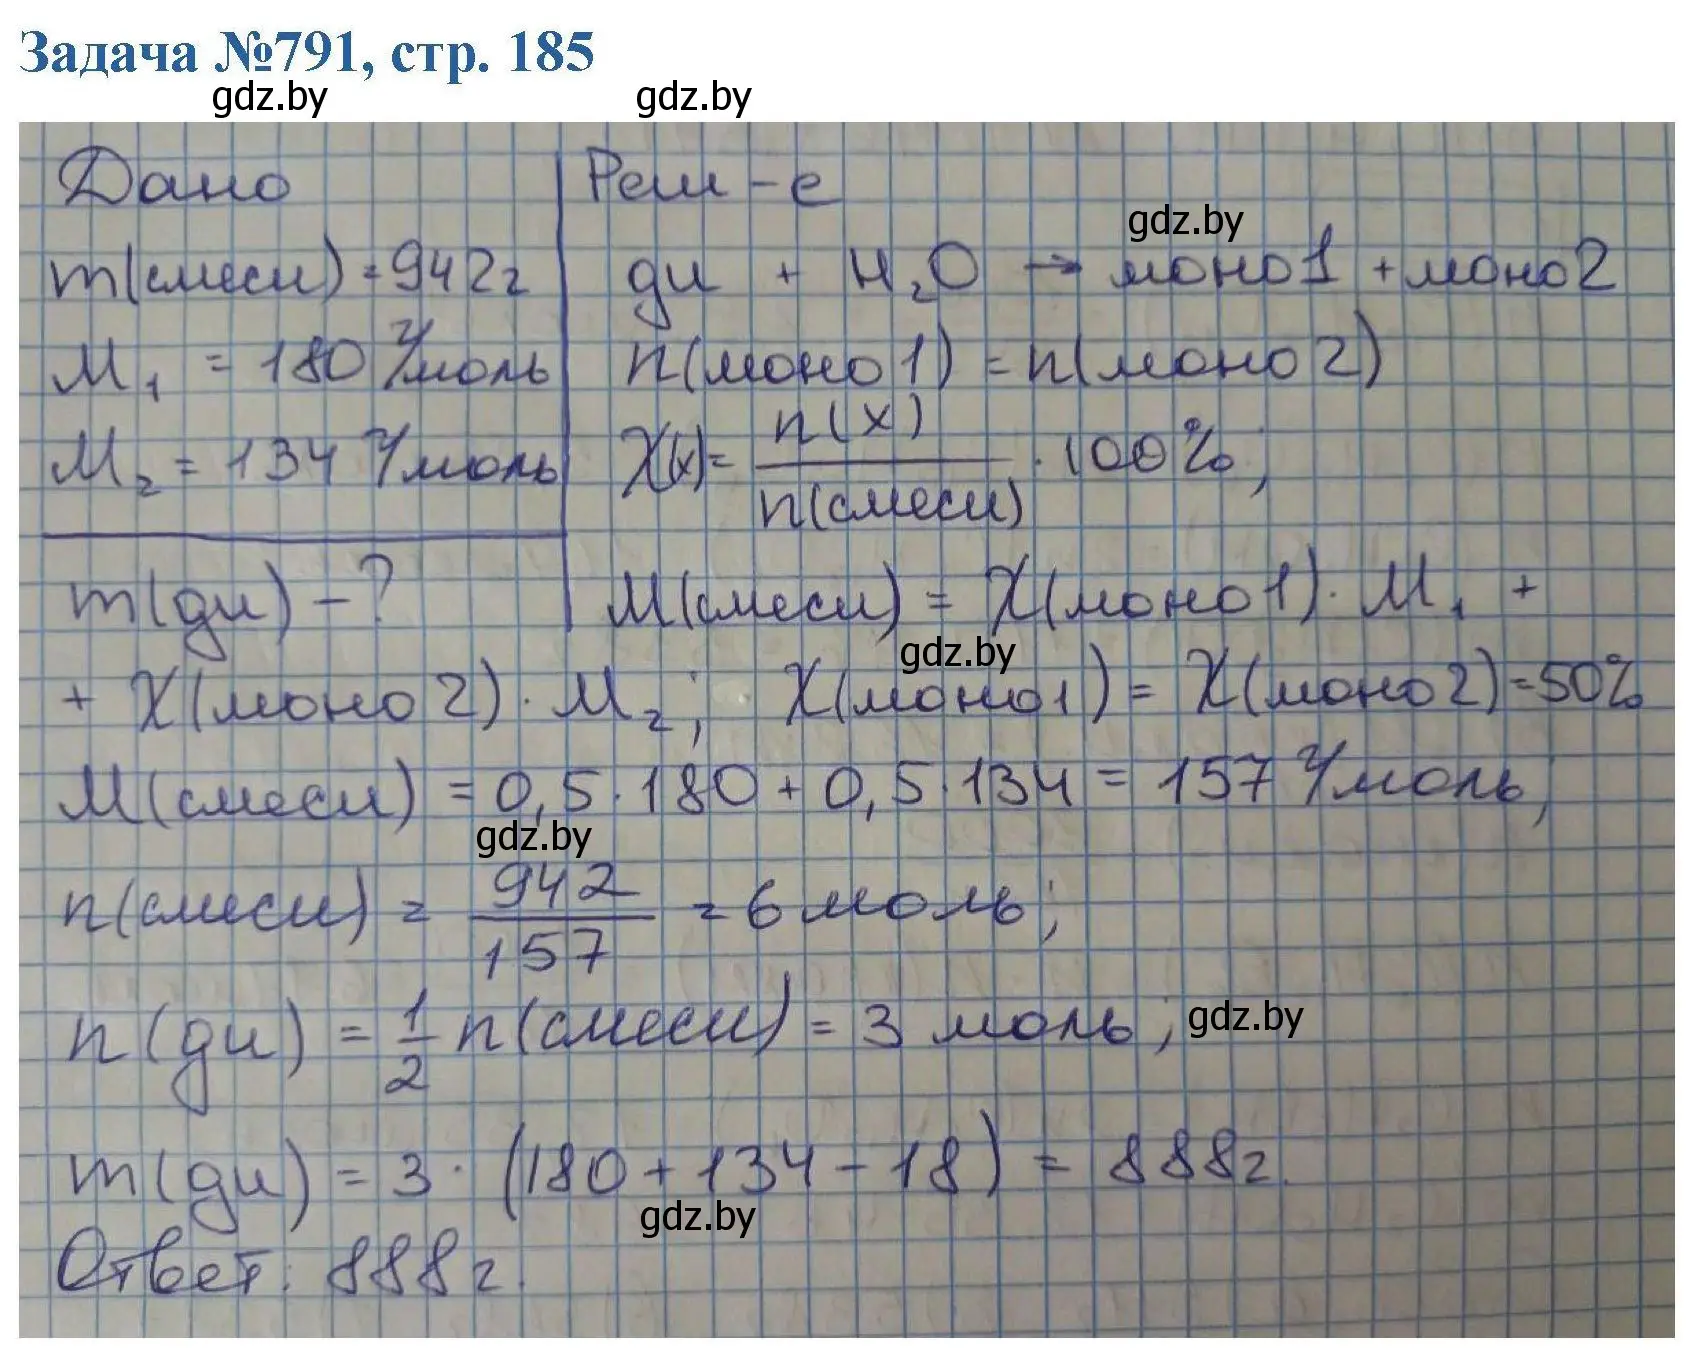 Задача №791, стр. 185
gdz.by gdz.by
Дано
m(смеси) = 942г
M₁ = 180 г/моль
M₂ = 134 г/моль
m(ди) - ?
Реш-е
gdz.by
ди + H₂O → моно1 + моно2
n(моно1) = n(моно2)
X(x) = n(x)/n(смеси) · 100%;
M(смеси) = X(моно1) · M₁ +
gdz.by
+ X(моно2) · M₂; X(моно1) = X(моно2) = 50%
M(смеси) = 0,5 · 180 + 0,5 · 134 = 157 г/моль;
gdz.by
n(смеси) = 942/157 = 6 моль;
n(ди) = 1/2 n(смеси) = 3 моль; gdz.by
m(ди) = 3 · (180 + 134 - 18) = 888г.
gdz.by
Ответ: 888г.